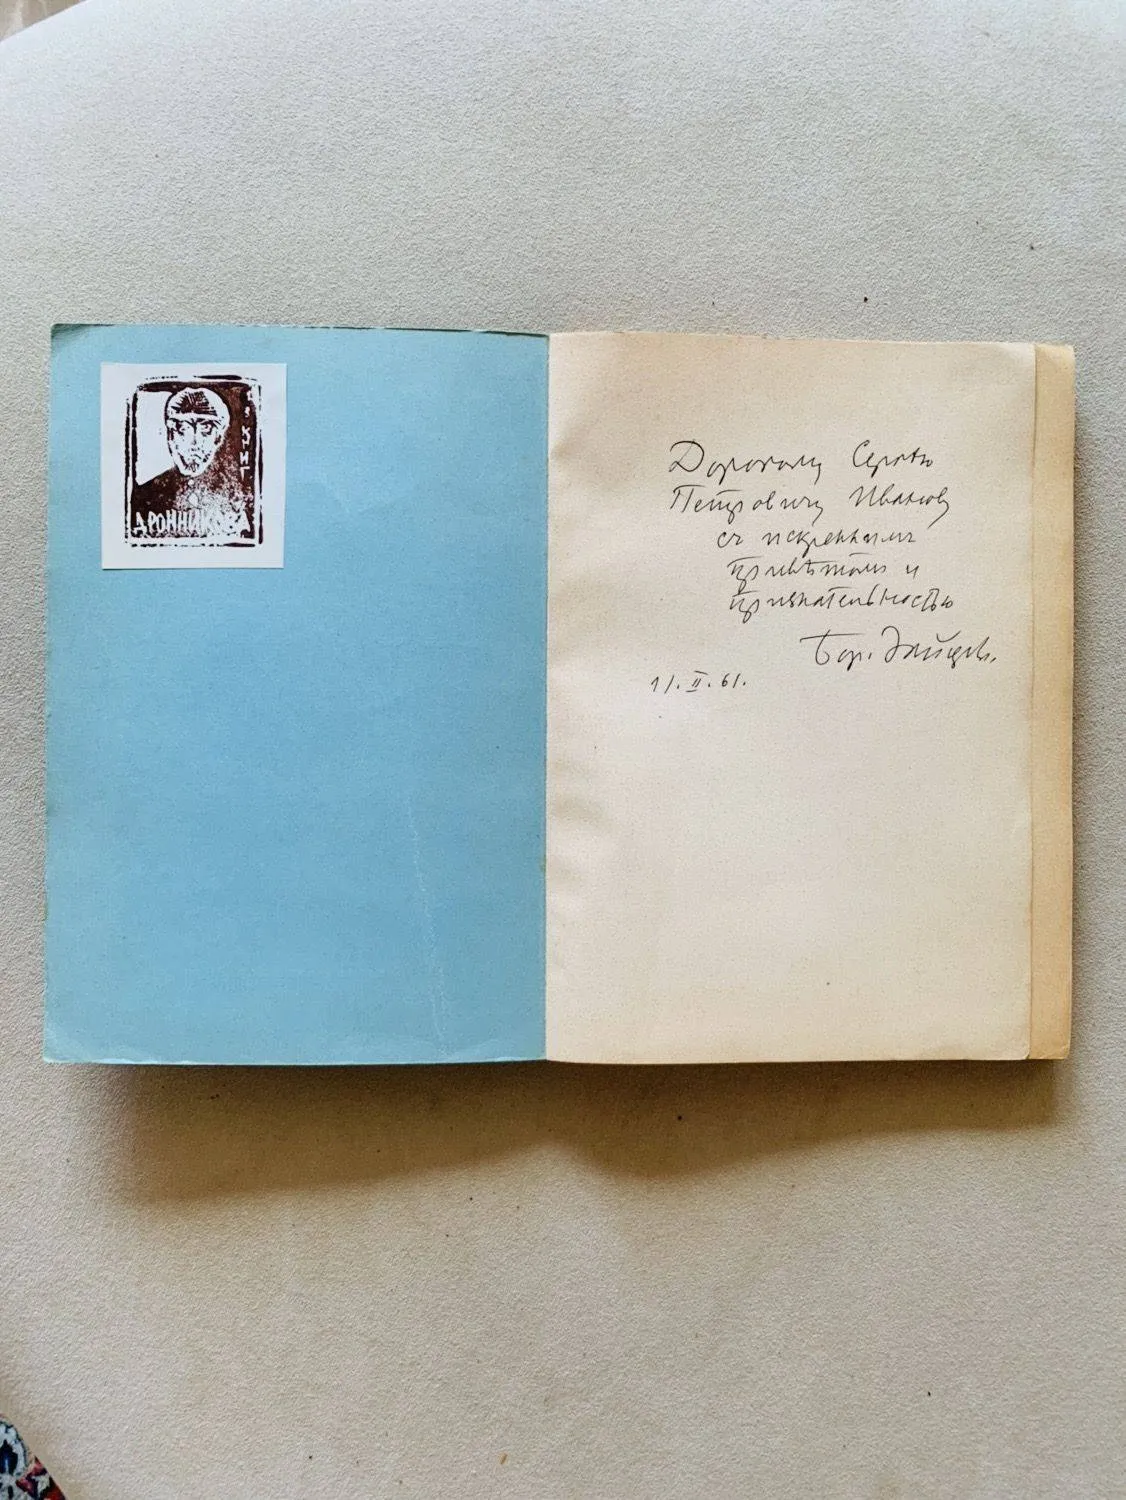 ИЗ КНИГ
ДРОННИКОВА
Дорогому Сергѣю
Петровичу Иванову
съ искреннимъ
привѣтомъ и
признательностью
Бор. Зайцев.
11.II.61.